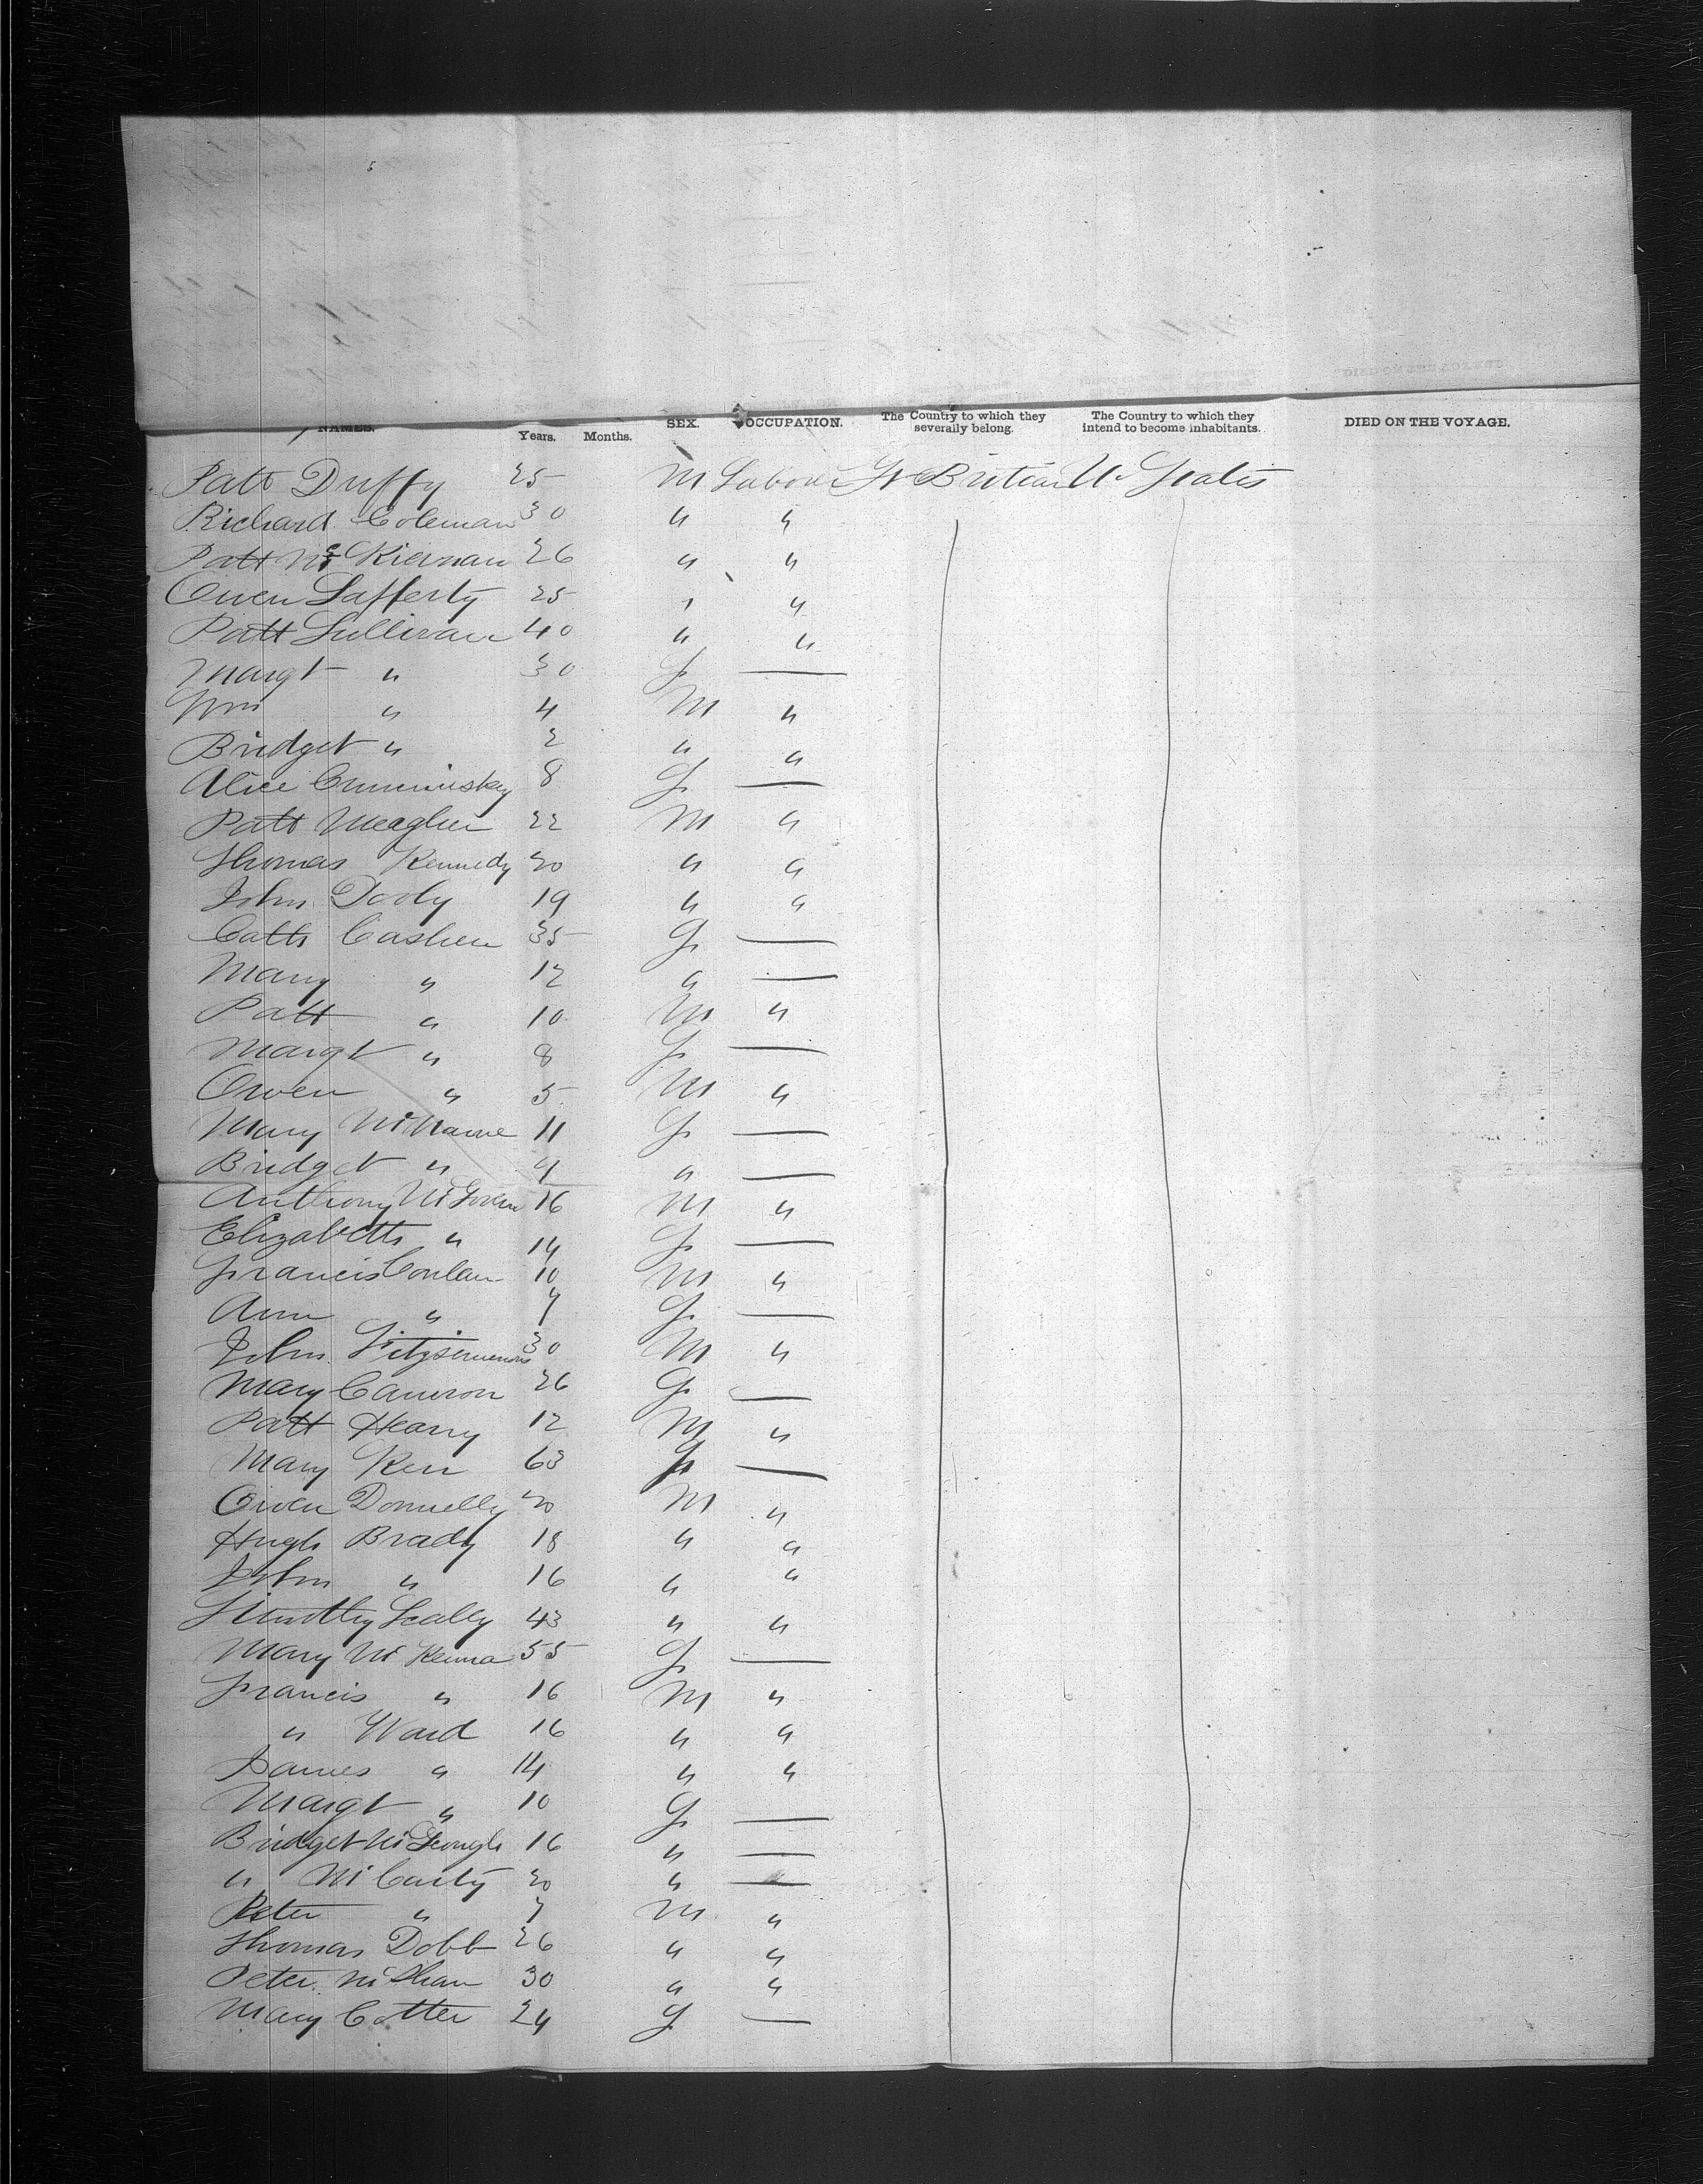 NAMES. Years. Months. SEX. OCCUPATION. The Country to which they severally belong. The Country to which they intend to become inhabitants. DIED ON THE VOYAGE.
Patt Duffy 25 M Labourer Gt Britian U. States
Richard Coleman 30 " "
Patt McKiernan 26 " "
Owen Lafferty 25 " "
Patt Sullivan 40 " "
Margt " 30 F —
Wm " 4 M "
Bridget " 2 " "
Alice 8 F —
Patt Meagher 22 M "
Thomas Kennedy 20 " "
John Dooly 19 " "
Cath Cashen 35 F —
Mary " 12 " —
Patt " 10 M "
Margt " 8 F —
Owen " 5 M "
Mary 11 F —
Bridget " 9 " —
Anthony McGovern 16 M "
Elizabeth " 14 F —
Francis Conlan 10 M "
Ann " 7 F —
John Fitzsimmons 30 M "
Mary Cameron 26 F —
Patt Heany 12 M "
Mary Kerr 63 F —
Owen Donnelly 20 M "
Hugh Brady 18 " "
John " 16 " "
Timothy Scally 43 " "
Mary McKenna 55 F —
Francis " 16 M "
" Ward 16 " "
James " 14 " "
Margt " 10 F —
Bridget McGeough 16 " —
" McCarty 20 " —
Peter " 7 M "
Thomas Dobb 26 " "
Peter 30 " "
Mary Cotter 24 F —